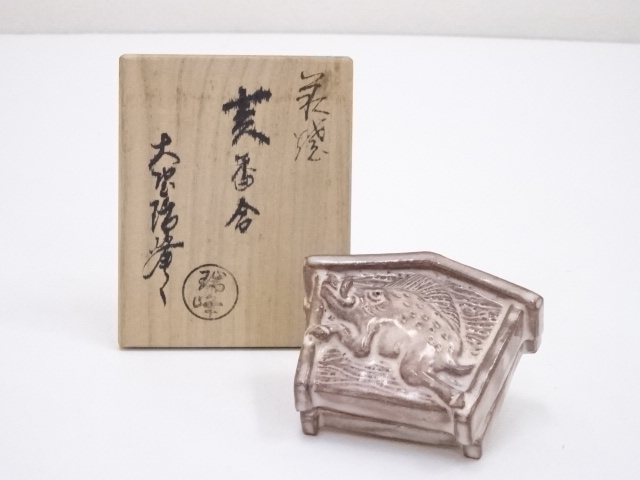 萩焼
亥香合
大埜瑞峯
瑞峰